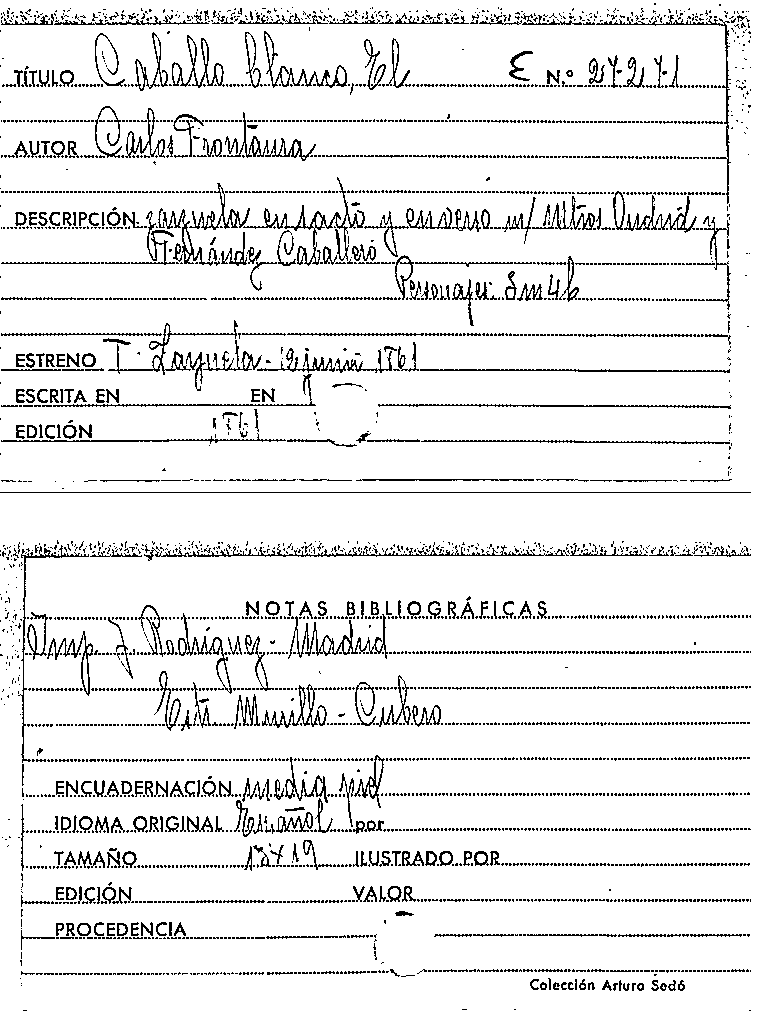 TÍTULO Caballo blanco, El E N.º 27-271
AUTOR Carlos Frontaura
DESCRIPCIÓN zarzuela en 1 acto y en verso m/ Mtros Oudrid y
Fernández Caballero
Personajes: 8m 4h
ESTRENO T. Zarzuela - 12 junio 1861
ESCRITA EN EN
EDICIÓN 1861
NOTAS BIBLIOGRÁFICAS
Imp. J. Rodríguez - Madrid
Murillo - Cubero
ENCUADERNACIÓN media piel
IDIOMA ORIGINAL Español por
TAMAÑO 13x19 ILUSTRADO POR
EDICIÓN VALOR
PROCEDENCIA
Colección Arturo Sedó